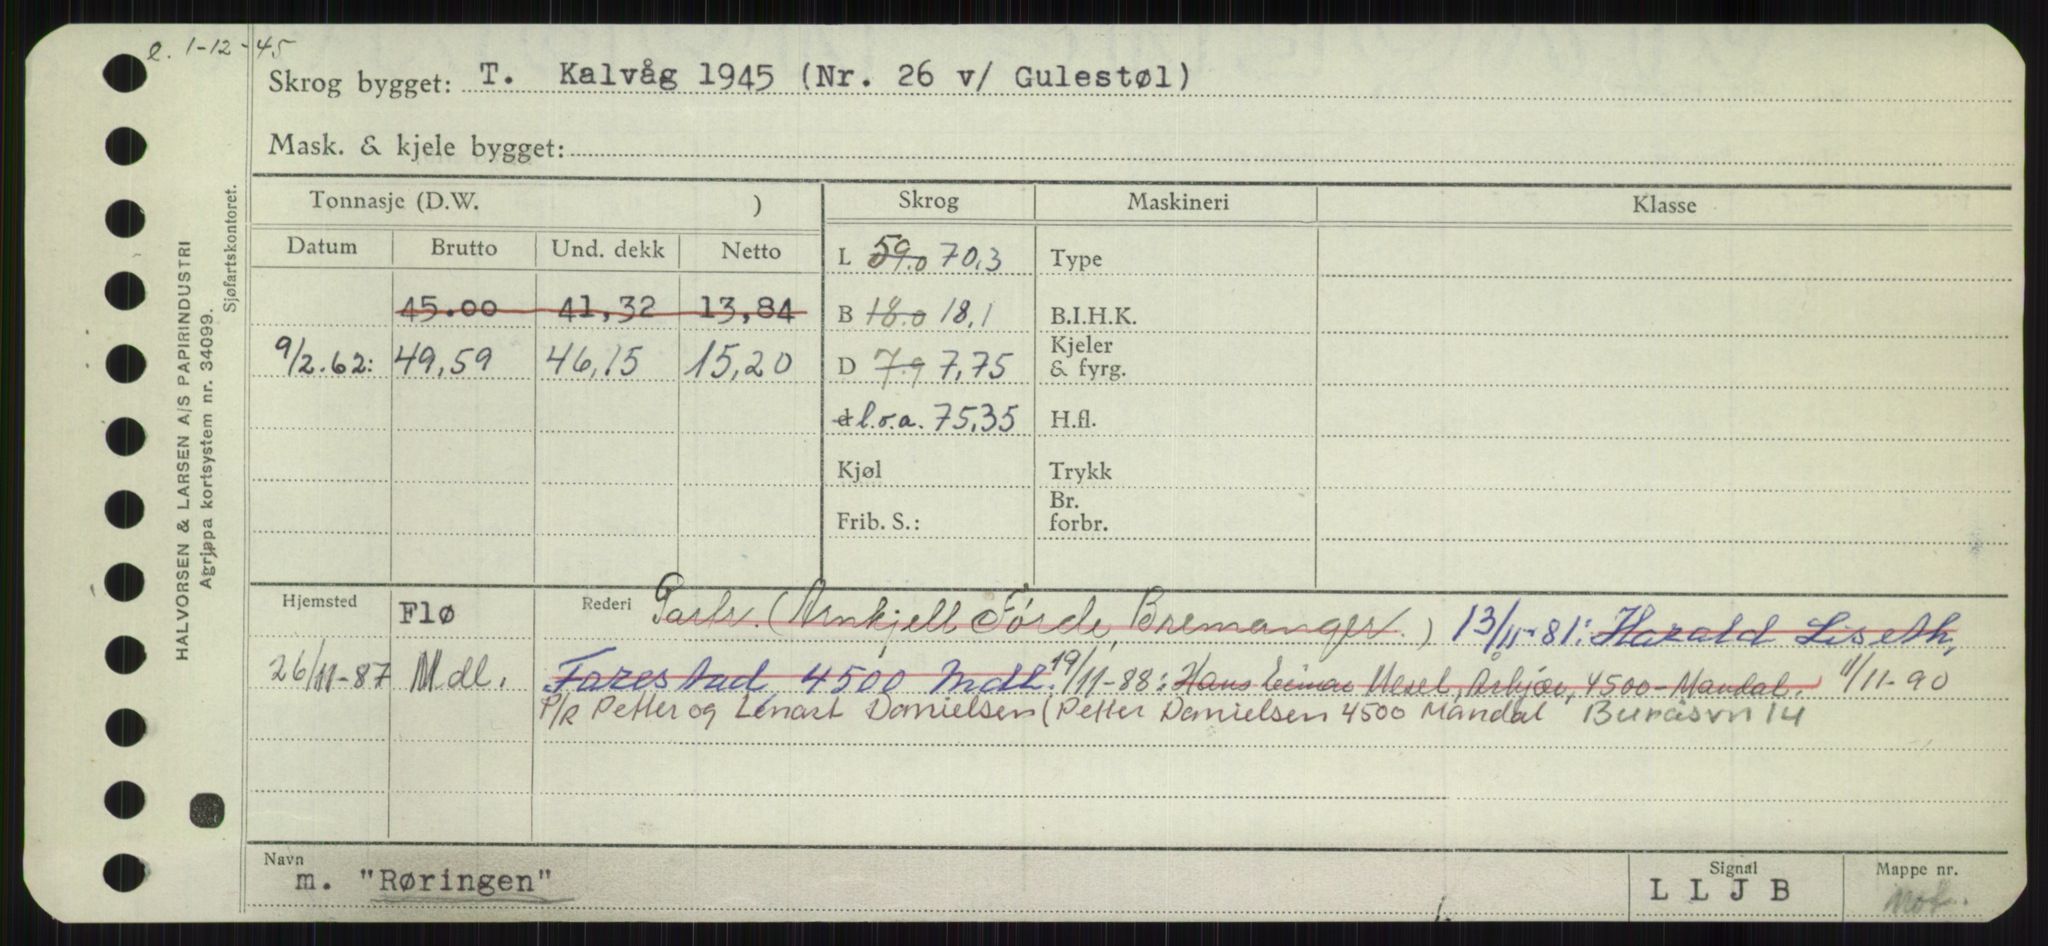 l. 1-12-45
Skrog bygget: T. Kalvåg 1945 (Nr. 26 v/ Gulestøl)
Mask. & kjele bygget:
Tonnasje (D.W. ) Skrog Maskineri Klasse
Datum Brutto Und. dekk Netto L 59.0 70,3 Type
45.00 41,32 13,84 B 18.0 18,1 B.I.H.K.
9/2.62: 49,59 46,15 15,20 D 7.9 7,75 Kjeler & fyrg.
d l.o.a. 75,35 H.fl.
Kjøl Trykk
Frib. S.: Br. forbr.
Hjemsted Flø Rederi Partr. (Arnkjell Førde, Bremanger.) 13/11-81: Harald Liseth,
26/11-87 Mdl. Farestad 4500 Mdl. 19/11-88: Hans Mesel, 4500-Mandal. 1/11-90
P/R Petter og Lenart Danielsen (Petter Danielsen 4500 Mandal Buråsvn 14
Navn m. "Røringen" Signal L L J B Mappe nr.
HALVORSEN & LARSEN A/S PAPIRINDUSTRI
Agrippa kortsystem nr. 34099.
Sjøfartskontoret.